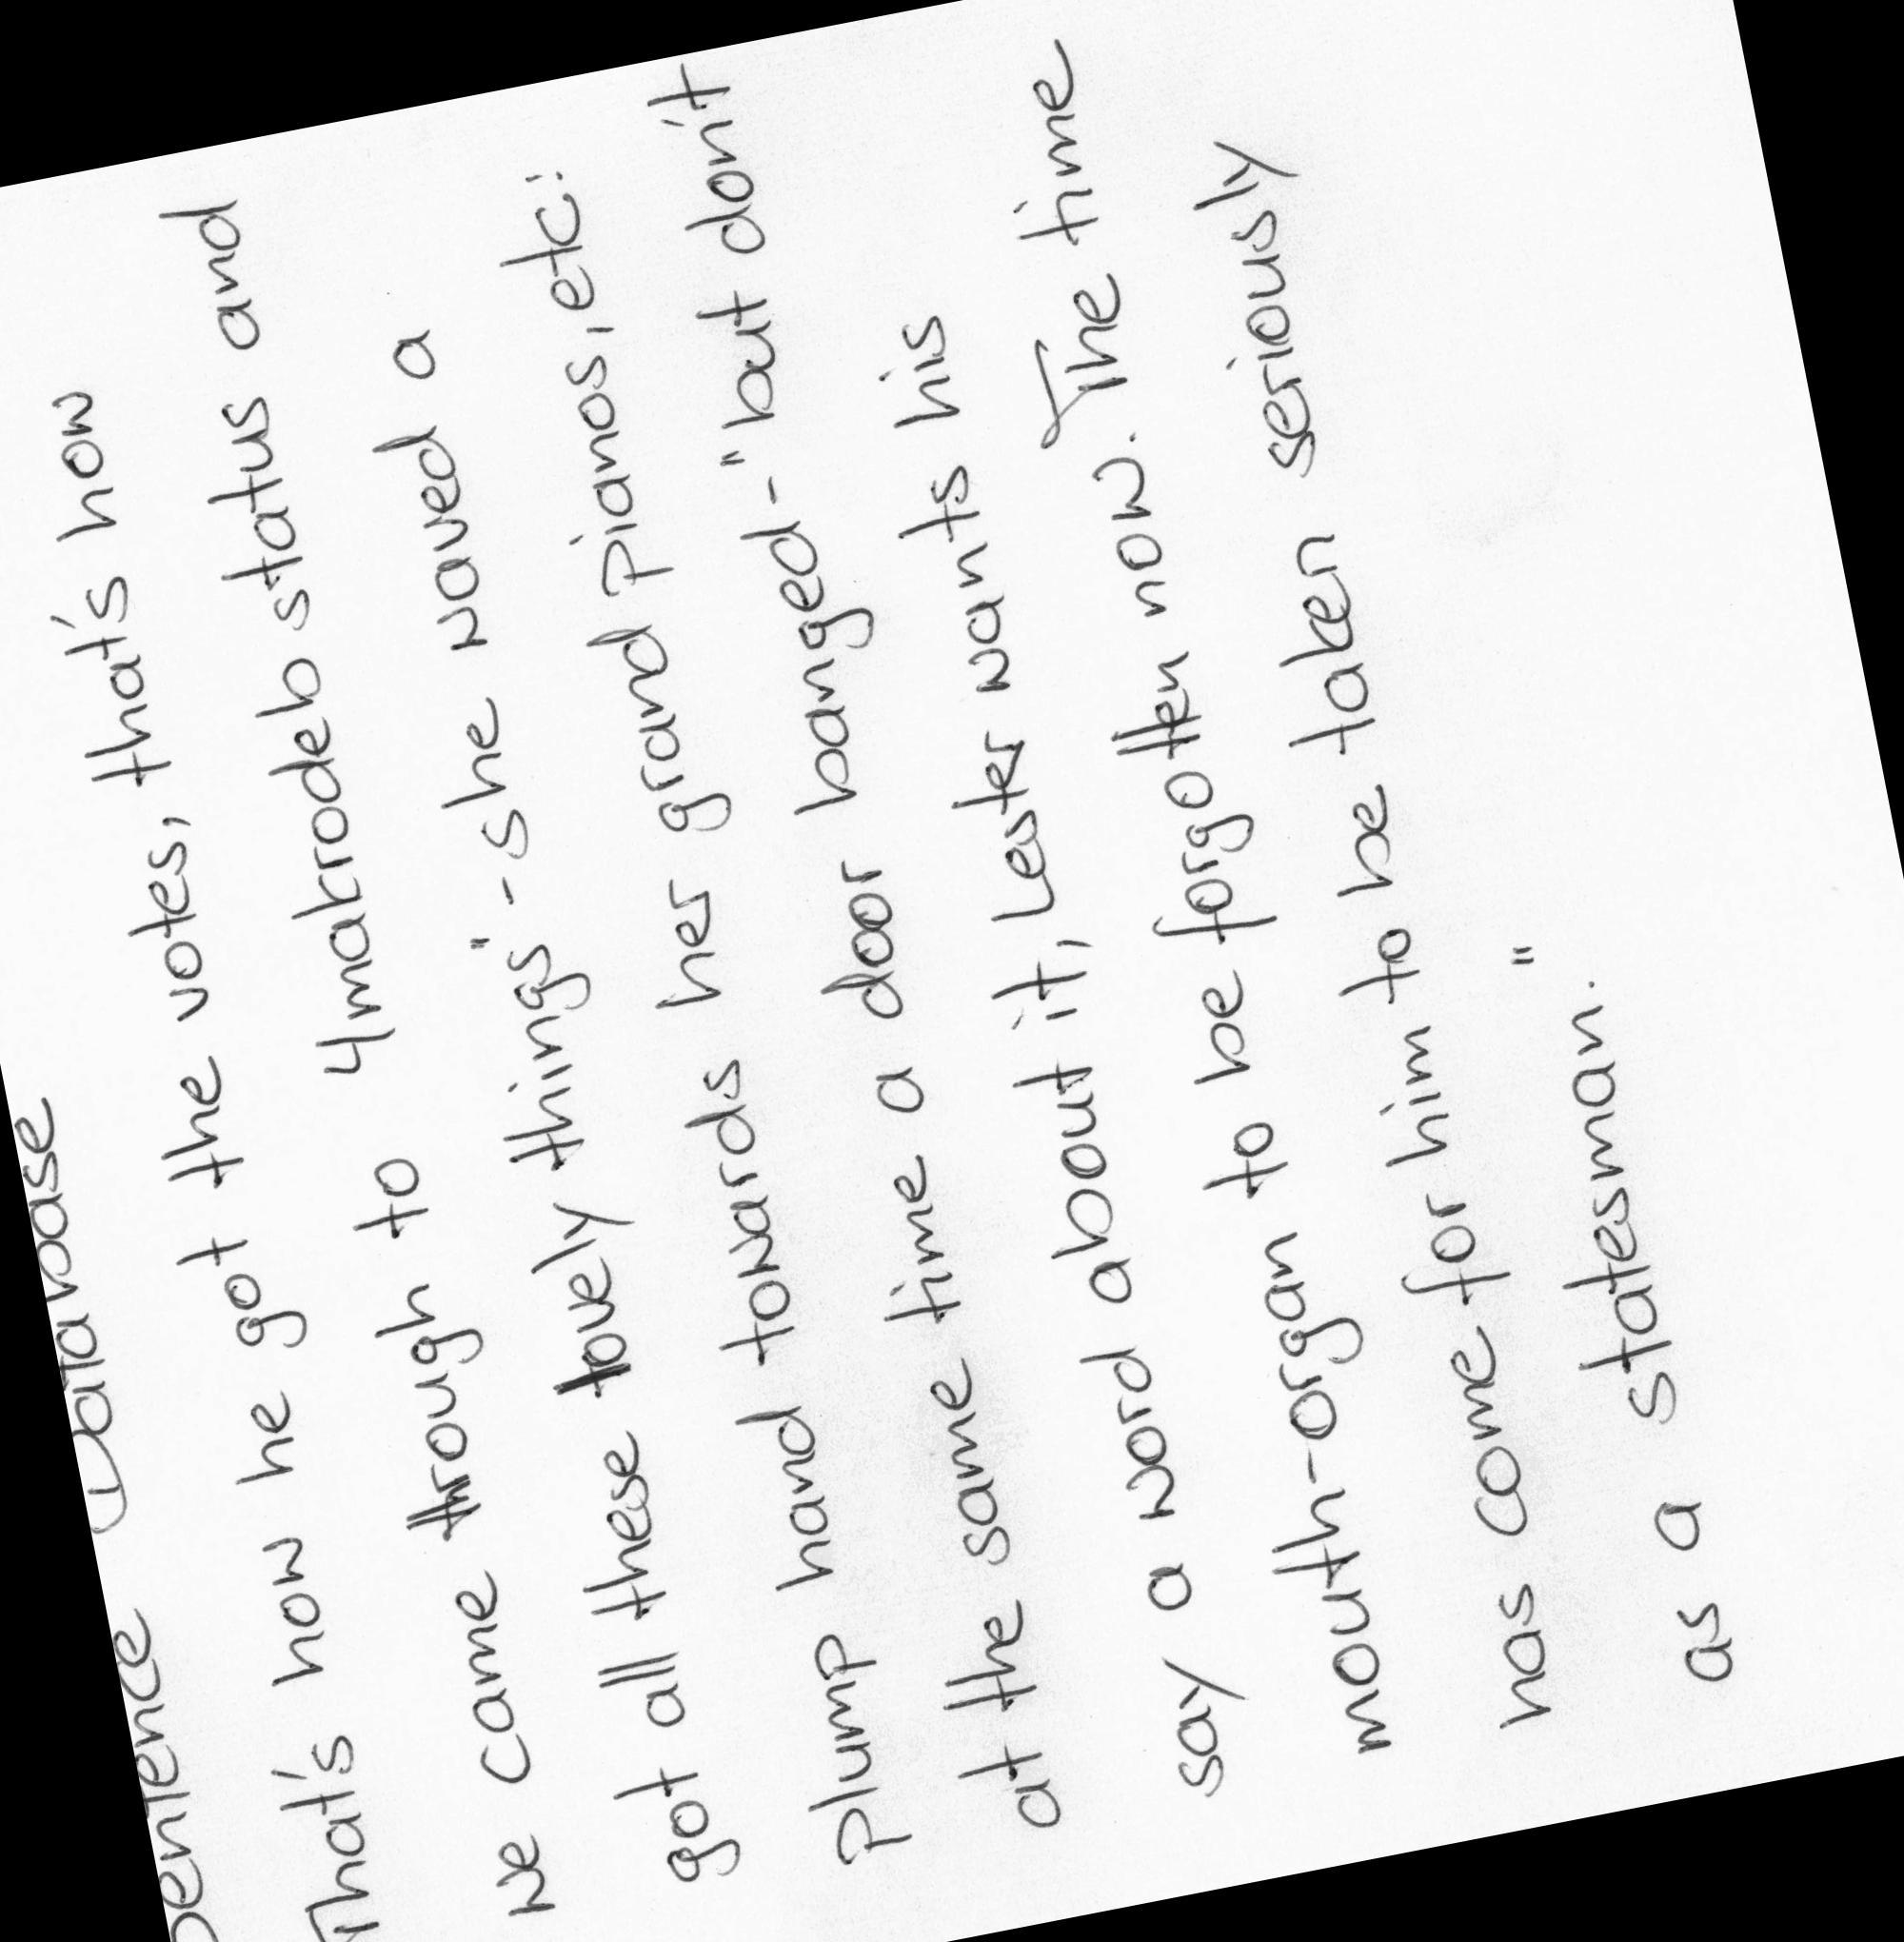 Sentence Database
That's how he got the votes, that's how
we came through to 4makrodeb status and
got all these lovely things" - she waved a
plump hand towards her grand pianos, etc:
at the same time a door banged - "but don't
say a word about it, Lester wants his
mouth-organ to be forgotten now. The time
has come for him to be taken seriously
as a statesman."